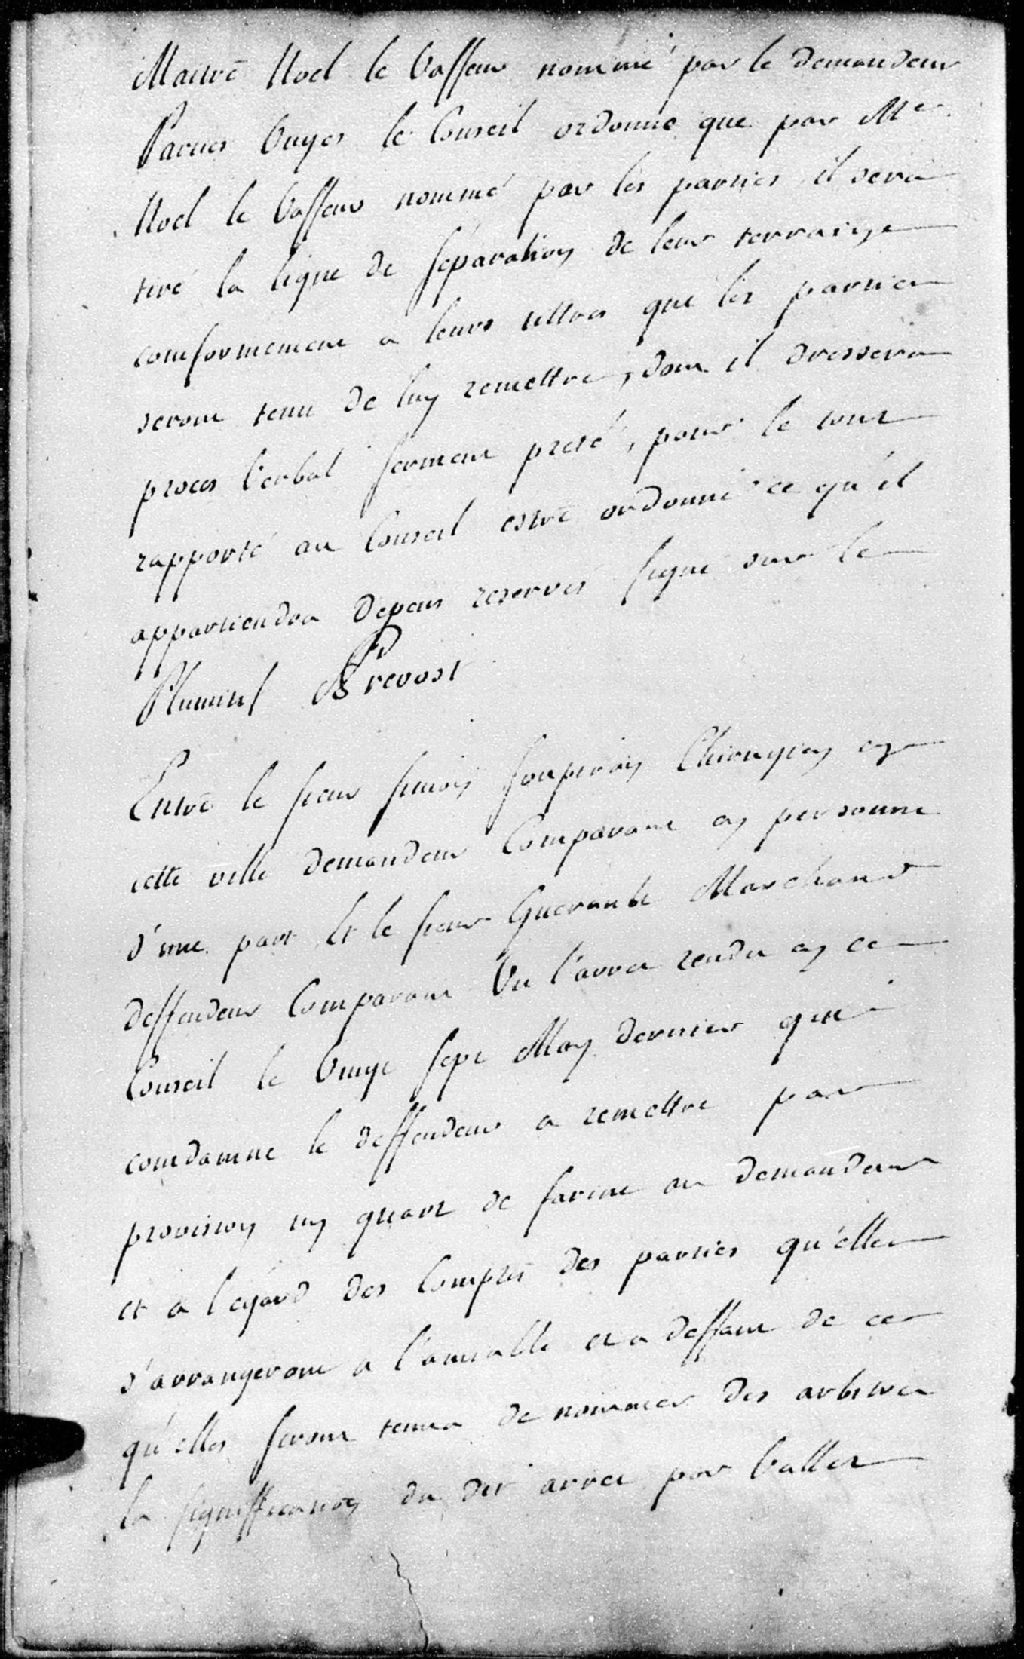 Maitre Noel le Vasseur nommé par le demandeur
Parties Ouyes le Conseil ordonne que par Me
Noel le Vasseur nommé par les parties il sera
tiré la ligne de séparation de leur terrain
conformement a leurs tittres que les parties
seront tenu de luy remettre, dont il dressera
proces Verbal serment preté, pour le tout
rapporté au Conseil estre ordonné ce qu'il
appartiendra depens reservés signé sur le
Plumitif Prevost
Entre le sieur simon soupiran Chirurgien en
cette ville demandeur Comparant en personne
d'une part Et le sieur Guerante Marchand
deffendeur Comparant Vu l'arret rendu en ce
Conseil le Vingt sept May dernier qui
condamne le deffendeur a remettre par
provision un quart de farine au demandeur
et a l'egard des Comptes des parties qu'elles
s'arrangeront a l'amiable et a deffaut de ce
qu'elles seront tenues de nommer des arbitres
la signiffication du dit arret par Vallet